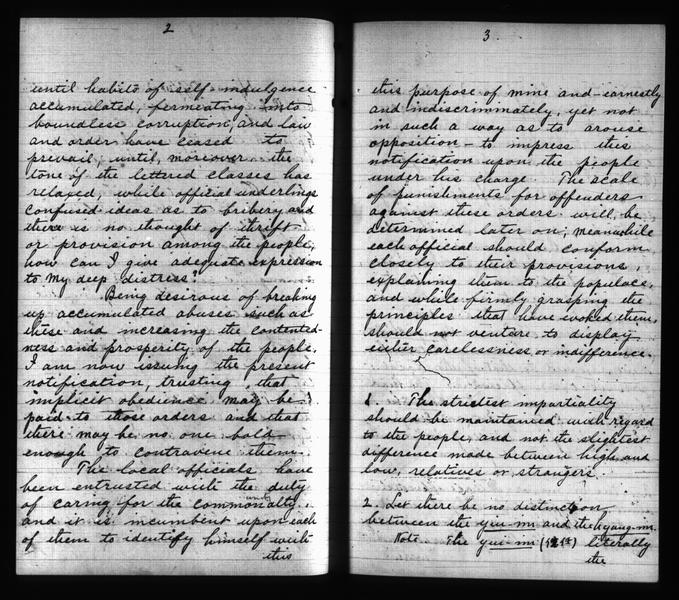 2
until habits of self-indulgence
accumulated, fermenting into
boundless corruption, and law
and order have ceased to
prevail; until, moreover the
tone of the lettered classes has
relaxed, while official underlings
confused ideas as to bribery and
there is no thought of thrift
or provision among the people,
how can I give adequate expression
to my deep distress?
Being desirous of breaking
up accumulated abuses such as
these and increasing the contented-
ness and prosperity of the people,
I am now issuing the present
notification, trusting, that
implicit obedience may be
paid to those orders and that
there may be no one bold
enough to contravene them.
The local officials have
been entrusted with the duty
of caring for the commonalty,
and it is incumbent upon each
of them to identify himself with
this
3.
this purpose of mine and earnestly
and indiscriminately, yet not
in such a way as to arouse
opposition - to impress this
notification upon the people
under his charge. The scale
of punishments for offenders
against these orders will be
determined later on; meanwhile
each official should conform
closely to their provisions,
explaining them to the populace,
and while firmly grasping the
principles that have evoked them,
should not venture to display
either carelessness or indifference.
1. The strictest impartiality
should be maintained with regard
to the people, and not the slightest
difference made between high and
low, relatives or strangers.
2. Let there be no distinction
between the yui-mi and the hyang-mi.
Note. The yui-mi literally
the